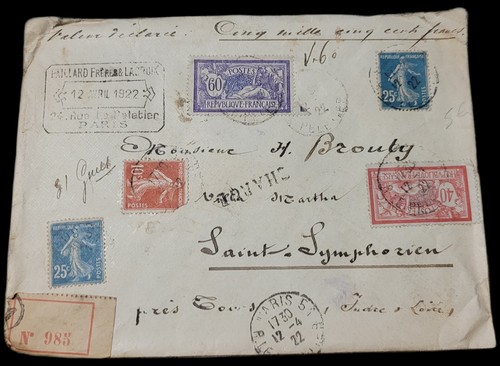 Valeur déclarée : Cinq mille cinq cent francs
PAILLARD FRÈRES & LACROIX
12 AVRIL 1922
Rue Le Peletier
PARIS
60 POSTES
REPUBLIQUE FRANÇAISE
25c
Monsieur H. Brouty
CHARGÉ
10c
POSTES
40
Martha
Saint-Symphorien
25c
près Tours
Indre & Loire
N° 985
PARIS
17 30
12-4
22